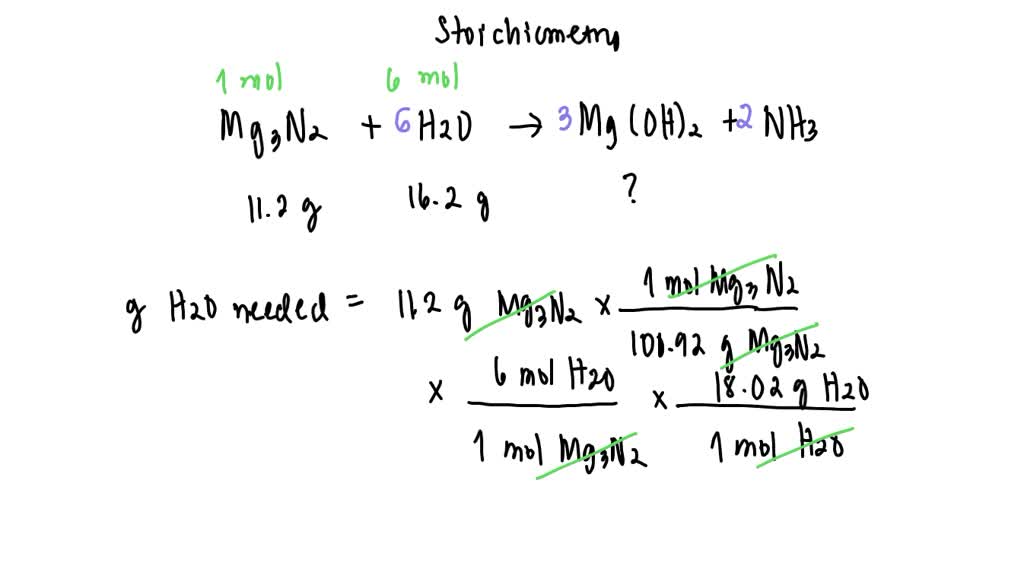 Stoichiometry
1 mol 6 mol
Mg3N2 + 6 H2O → 3 Mg(OH)2 + 2 NH3
11.2 g 16.2 g ?
g H2O needed = 11.2 g Mg3N2 × 1 mol Mg3N2
101.92 g Mg3N2
× 6 mol H2O × 18.02 g H2O
1 mol Mg3N2 1 mol H2O